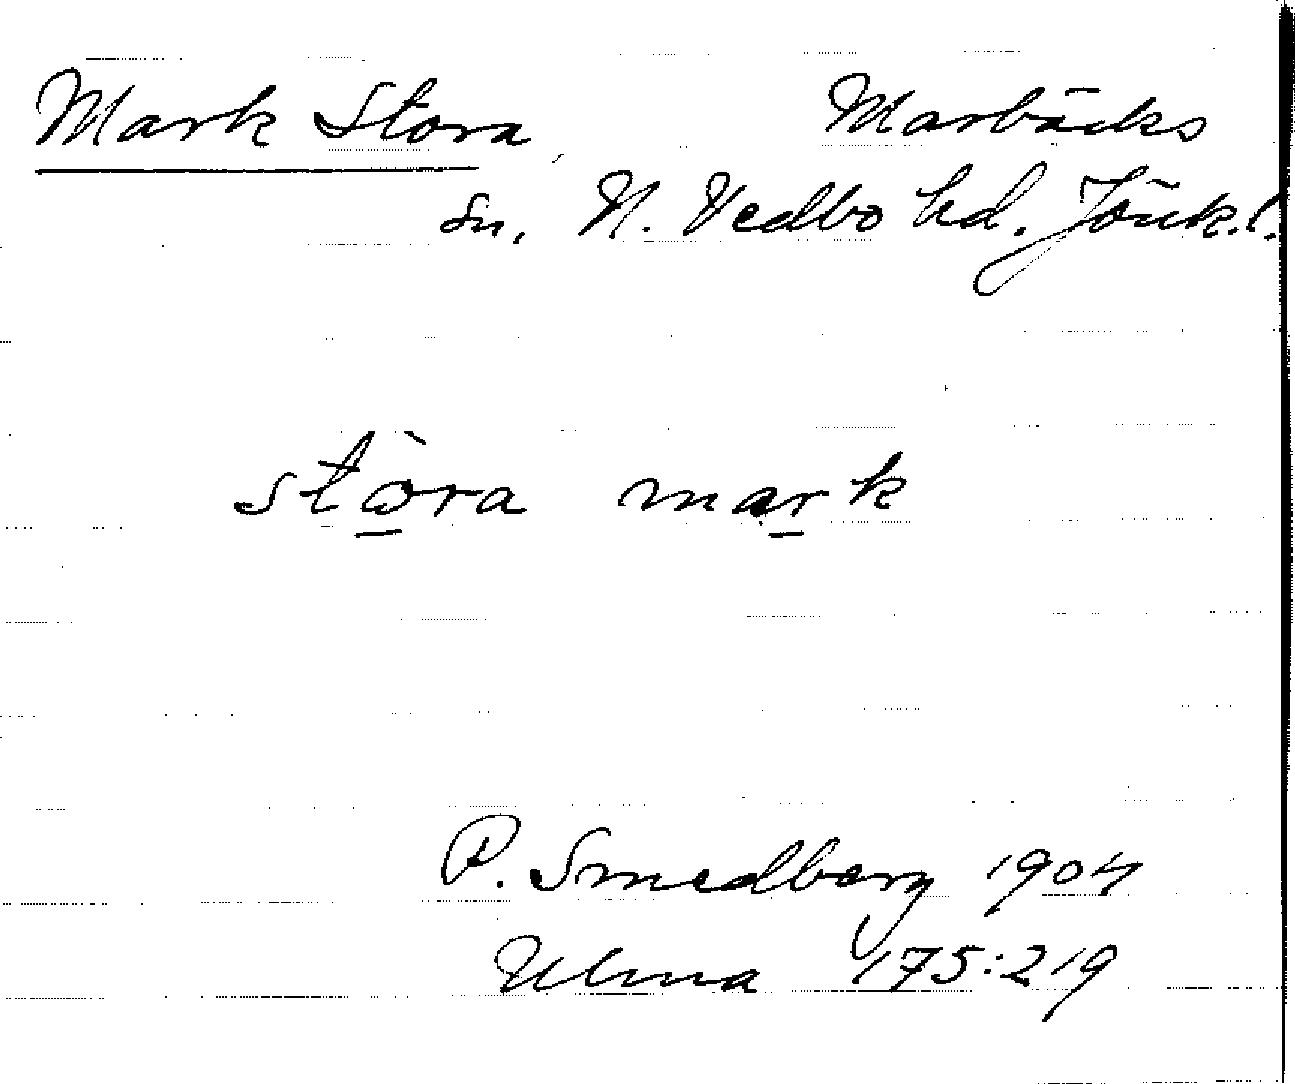 Mark Stora, Marbäcks
sn, N. Vedbo hd. Jönk.l.
stòra mark
P. Smedberg 1904
Ulma 175:219